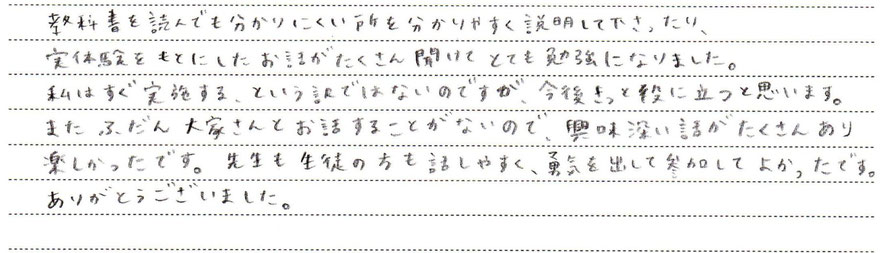 教科書を読んでも分かりにくい所を分かりやすく説明して下さったり、
実体験をもとにしたお話がたくさん聞けてとても勉強になりました。
私はすぐ実施する、という訳ではないのですが、今後きっと役に立つと思います。
またふだん大家さんとお話することがないので、興味深い話がたくさんあり
楽しかったです。先生も生徒の方も話しやすく、勇気を出して参加してよかったです。
ありがとうございました。